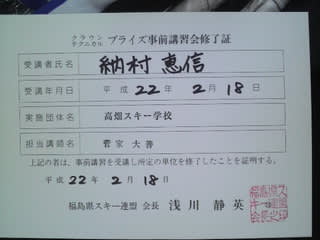 クラウン
テクニカル プライズ事前講習会修了証
受講者氏名 納村 恵信
受講年月日 平成 22 年 2 月 18 日
実施団体名 高畑スキー学校
担当講師名 菅家 大善
上記の者は、事前講習を受講し所定の単位を修了したことを証明する。
平成 22 年 2 月 18 日
福島県スキー連盟 会長 浅川 静英